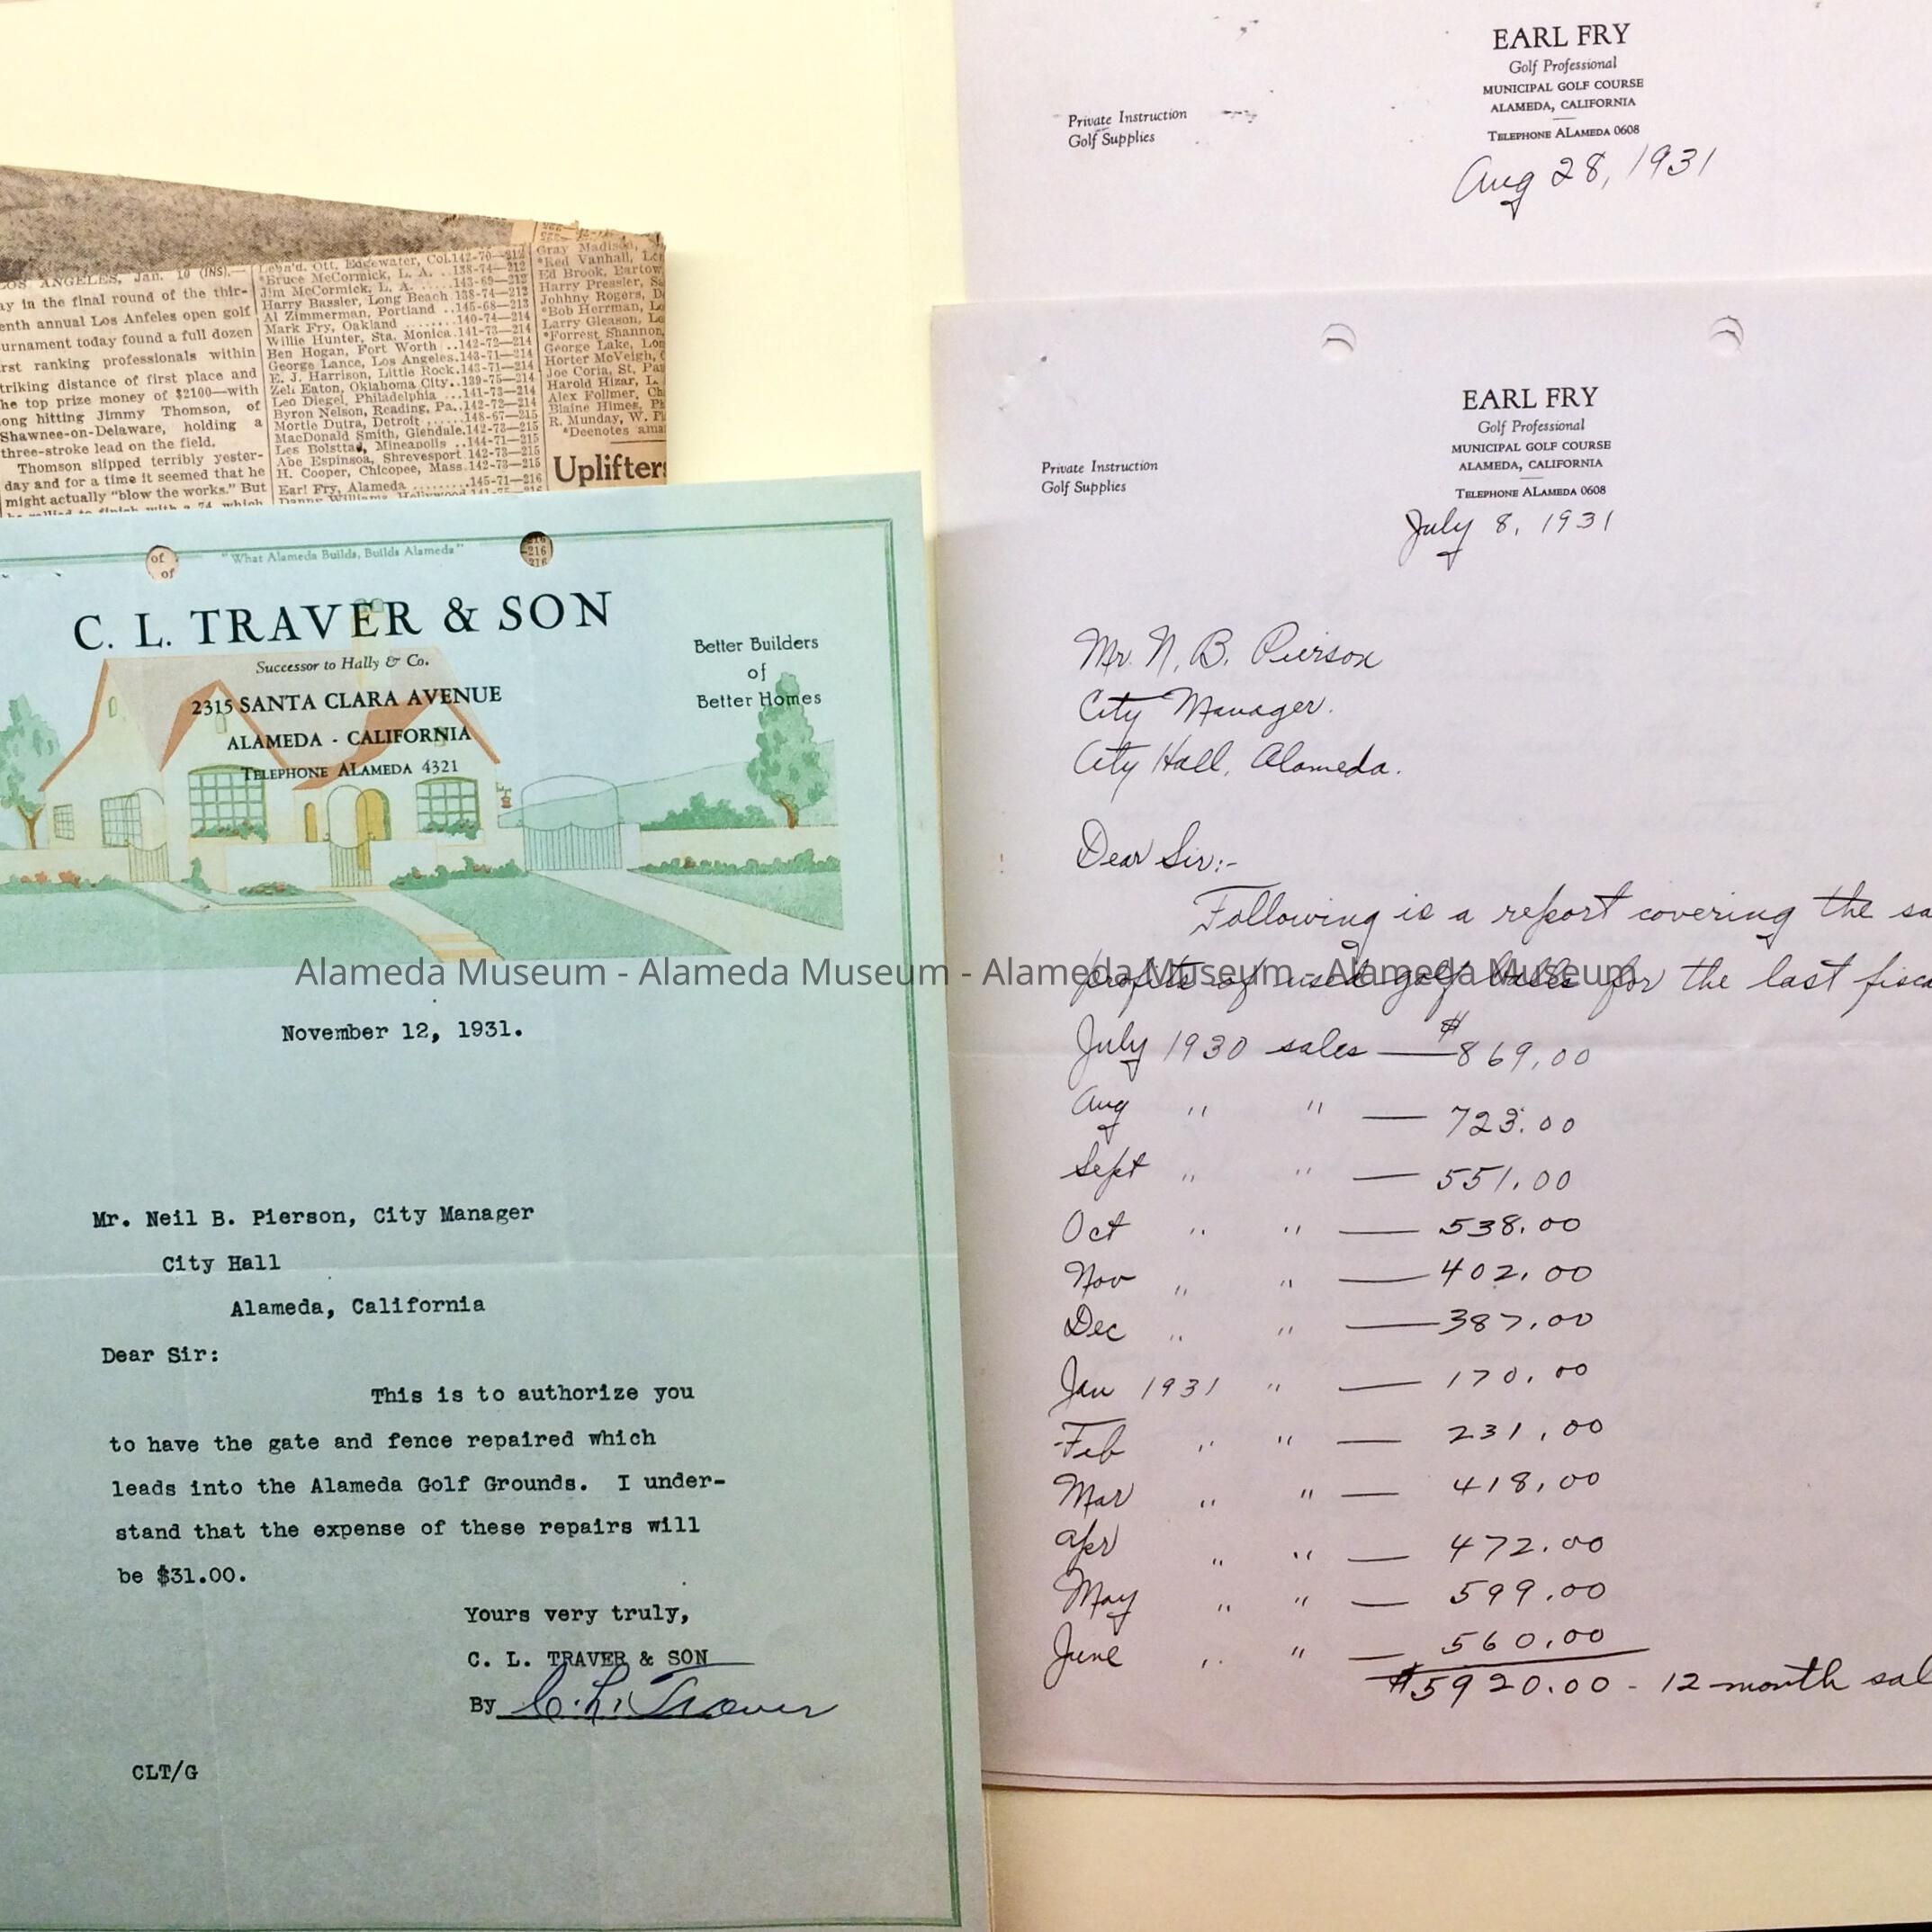 LOS ANGELES, Jan. 10 (INS).—
ay in the final round of the thir-
enth annual Los Anfeles open golf
urnament today found a full dozen
rst ranking professionals within
triking distance of first place and
he top prize money of $2100—with
ong hitting Jimmy Thomson, of
Shawnee-on-Delaware, holding a
three-stroke lead on the field.
Thomson slipped terribly yester-
day and for a time it seemed that he
might actually "blow the works." But
he rallied to finish with a 74, which
Ott, Edgewater, Col.142-70—212
*Bruce McCormick, L. A. ..138-74—212
Jim McCormick, L. A. .....143-69—212
Harry Bassler, Long Beach 138-74—212
Al Zimmerman, Portland ..145-68—213
Mark Fry, Oakland ........140-74—214
Willie Hunter, Sta. Monica.141-73—214
Ben Hogan, Fort Worth ..142-72—214
George Lance, Los Angeles.143-71—214
E. J. Harrison, Little Rock.143-71—214
Zell Eaton, Oklahoma City..139-75—214
Leo Diegel, Philadelphia ...141-73—214
Byron Nelson, Reading, Pa..142-72—214
Mortie Dutra, Detroit ......148-67—215
MacDonald Smith, Glendale.142-73—215
Les Bolsttad, Mineapolis ..144-71—215
Abe Espinsoa, Shrevesport.142-73—215
H. Cooper, Chicopee, Mass.142-73—215
Earl Fry, Alameda .........145-71—216
Danny Williams, Hollywood 141-75—216
Gray Madison,
*Red Vanhall,
Ed Brook, Bartow
Harry Pressler,
Johhny Rogers,
*Bob Herrman,
Larry Gleason,
*Forrest Shannon,
George Lake, Lon
Horter McVeigh,
Joe Coria, St. Pau
Harold Hizar, L.
Alex Follmer, Ch
Blaine Himes,
R. Munday, W.
*Deenotes ama
Uplifters
of
of
216
216
216
"What Alameda Builds, Builds Alameda"
C. L. TRAVER & SON
Successor to Hally & Co.
2315 SANTA CLARA AVENUE
ALAMEDA - CALIFORNIA
TELEPHONE ALAMEDA 4321
Better Builders
of
Better Homes
November 12, 1931.
Mr. Neil B. Pierson, City Manager
City Hall
Alameda, California
Dear Sir:
This is to authorize you
to have the gate and fence repaired which
leads into the Alameda Golf Grounds. I under-
stand that the expense of these repairs will
be $31.00.
Yours very truly,
C. L. TRAVER & SON
By C. L. Traver
CLT/G
EARL FRY
Golf Professional
MUNICIPAL GOLF COURSE
ALAMEDA, CALIFORNIA
TELEPHONE ALAMEDA 0608
Private Instruction
Golf Supplies
Aug 28, 1931
EARL FRY
Golf Professional
MUNICIPAL GOLF COURSE
ALAMEDA, CALIFORNIA
TELEPHONE ALAMEDA 0608
Private Instruction
Golf Supplies
July 8, 1931
Mr. N. B. Pierson
City Manager.
City Hall, Alameda.
Dear Sir:-
Following is a report covering the sa
profits of used golf balls for the last fisca
July 1930 sales — $869.00
Aug " " — 723.00
Sept " " — 551.00
Oct " " — 538.00
Nov " " — 402.00
Dec " " — 387.00
Jan 1931 " — 170.00
Feb " " — 231.00
Mar " " — 418.00
Apr " " — 472.00
May " " — 599.00
June " " — 560.00
$5920.00 - 12 month sal
Alameda Museum - Alameda Museum - Alameda Museum - Alameda Museum